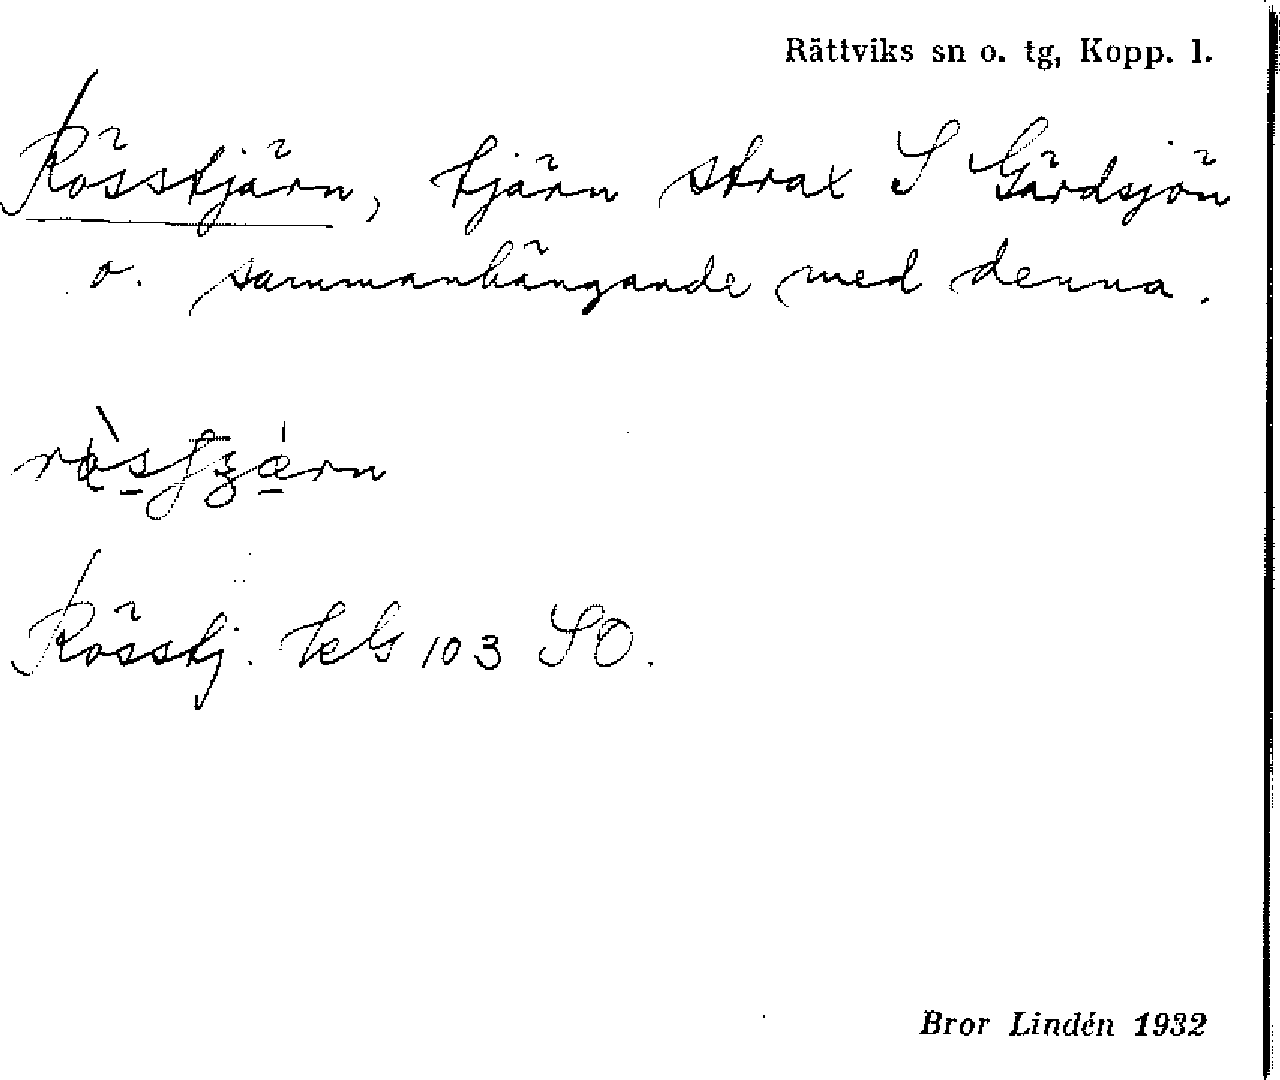 Rättviks sn o. tg, Kopp. l.
Rösstjärn, tjärn strax S Gärdsjön
o. sammanhängande med denna.
Rösstj. kbl 103 SO.
Bror Lindén 1932